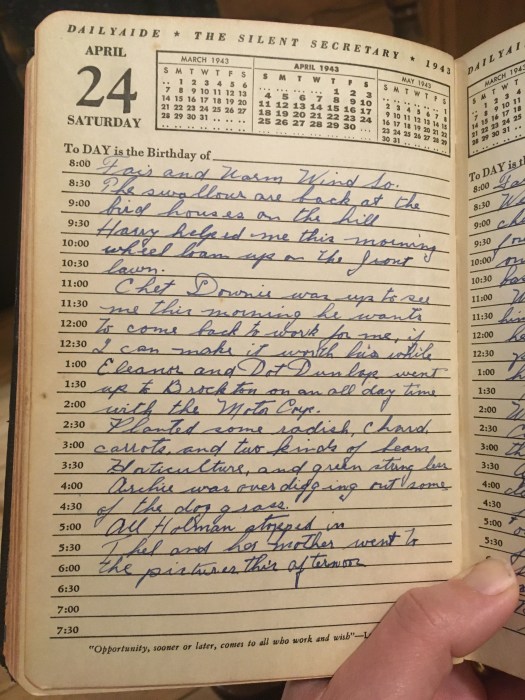 DAILYAIDE * THE SILENT SECRETARY * 1943
APRIL
24
SATURDAY
MARCH 1943
S M T W T F S
.. 1 2 3 4 5 6
7 8 9 10 11 12 13
14 15 16 17 18 19 20
21 22 23 24 25 26 27
28 29 30 31 .. .. ..
APRIL 1943
S M T W T F S
.. .. .. .. 1 2 3
4 5 6 7 8 9 10
11 12 13 14 15 16 17
18 19 20 21 22 23 24
25 26 27 28 29 30 ..
MAY 1943
S M T W T F S
.. .. .. .. .. .. 1
2 3 4 5 6 7 8
9 10 11 12 13 14 15
16 17 18 19 20 21 22
23 24 25 26 27 28 29
30 31
To DAY is the Birthday of
8:00 Fair and Warm Wind So.
8:30 The swallows are back at the
9:00 bird houses on the hill
9:30 Harry helped me this morning
10:00 wheel loam up on the front
10:30 lawn.
11:00 Chet Downie was up to see
11:30 me this morning he wants
12:00 to come back to work for me, if
12:30 I can make it worth his while
1:00 Eleanor and Dot Dunlap went
1:30 up to Brockton on an all day time
2:00 with the Motor Corp.
2:30 Planted some radish, chard
3:00 carrots, and two kinds of beans
3:30 Horticulture, and green string
4:00 Archie was over digging out some
4:30 of the dog grass.
5:00 All Holman stopped in
5:30 Thel and her mother went to
6:00 the pictures this afternoon
6:30
7:00
7:30
"Opportunity, sooner or later, comes to all who work and wish"